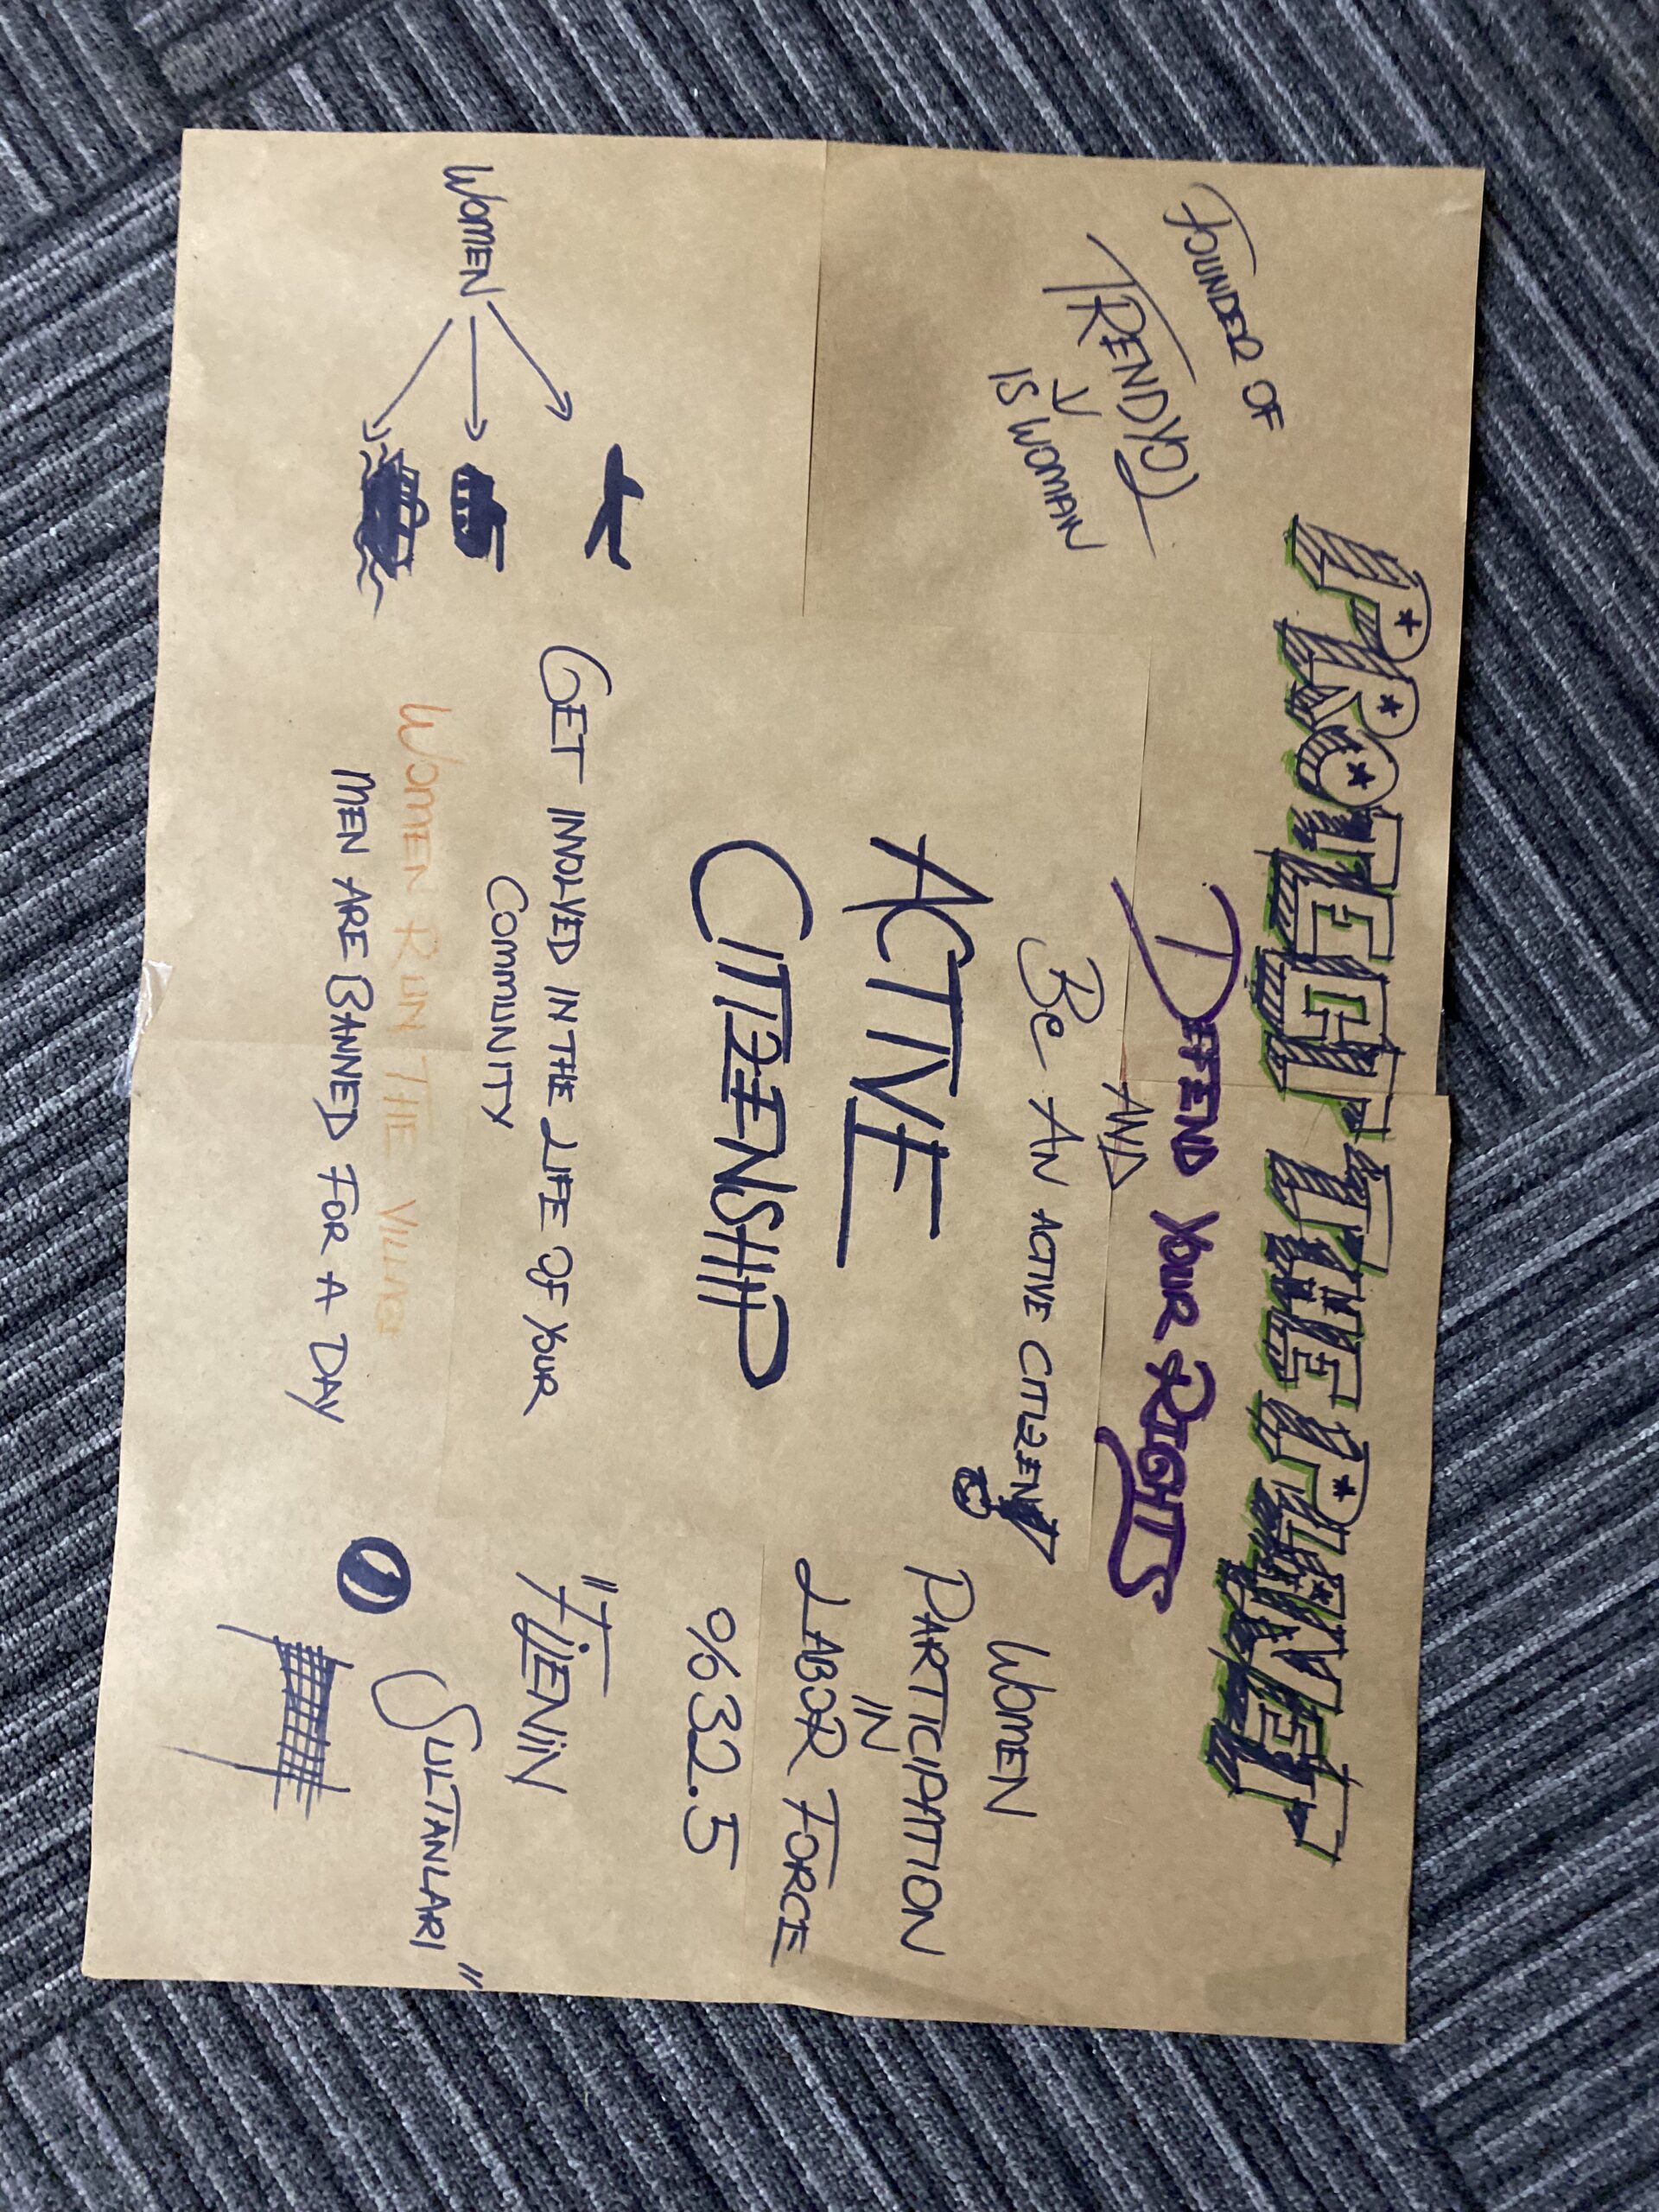 PROTECT THE PLANET
FOUNDER OF
TRENDYOL
IS WOMAN
DEFEND YOUR RIGHTS
AND
Be AN ACTIVE CITIZEN
ACTIVE
CITIZENSHIP
WOMEN
PARTICIPATION
IN
LABOR FORCE
%32.5
WOMEN
GET INVOLVED IN THE LIFE OF YOUR
COMMUNITY
"FİLENİN
SULTANLARI"
WOMEN RUN THE
MEN ARE BANNED FOR A DAY